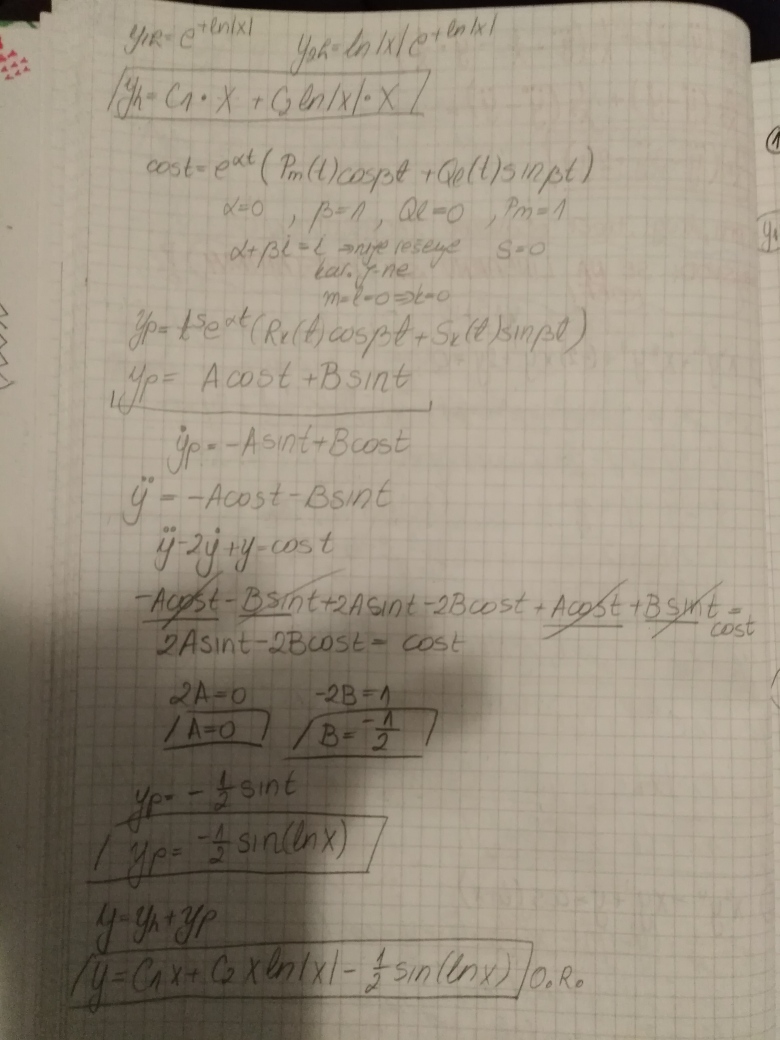 y₁ₕ = e^{+ln|x|}   y₂ₕ = ln|x|e^{+ln|x|}
yₕ = C₁·x + C₂ln|x|·x
cost = e^{αt}(Pm(t)cosβt + Ql(t)sinβt)
α=0 , β=1 , Ql=0 , Pm=1
α+βi = i ⇒ nije rešenje   S=0
kar. j-ne
m=l=0 ⇒ k=0
yp = t^s e^{αt}(Rk(t)cosβt + Sk(t)sinβt)
yp = Acost + Bsint
ẏp = -Asint + Bcost
ÿ = -Acost - Bsint
ÿ - 2ẏ + y = cost
-Acost - Bsint + 2Asint - 2Bcost + Acost + Bsint = cost
2Asint - 2Bcost = cost
2A=0   -2B=1
A=0   B = -1/2
yp = -1/2 sint
yp = -1/2 sin(lnx)
y = yh + yp
y = C₁x + C₂xln|x| - 1/2 sin(lnx) O.R.
1
y₁